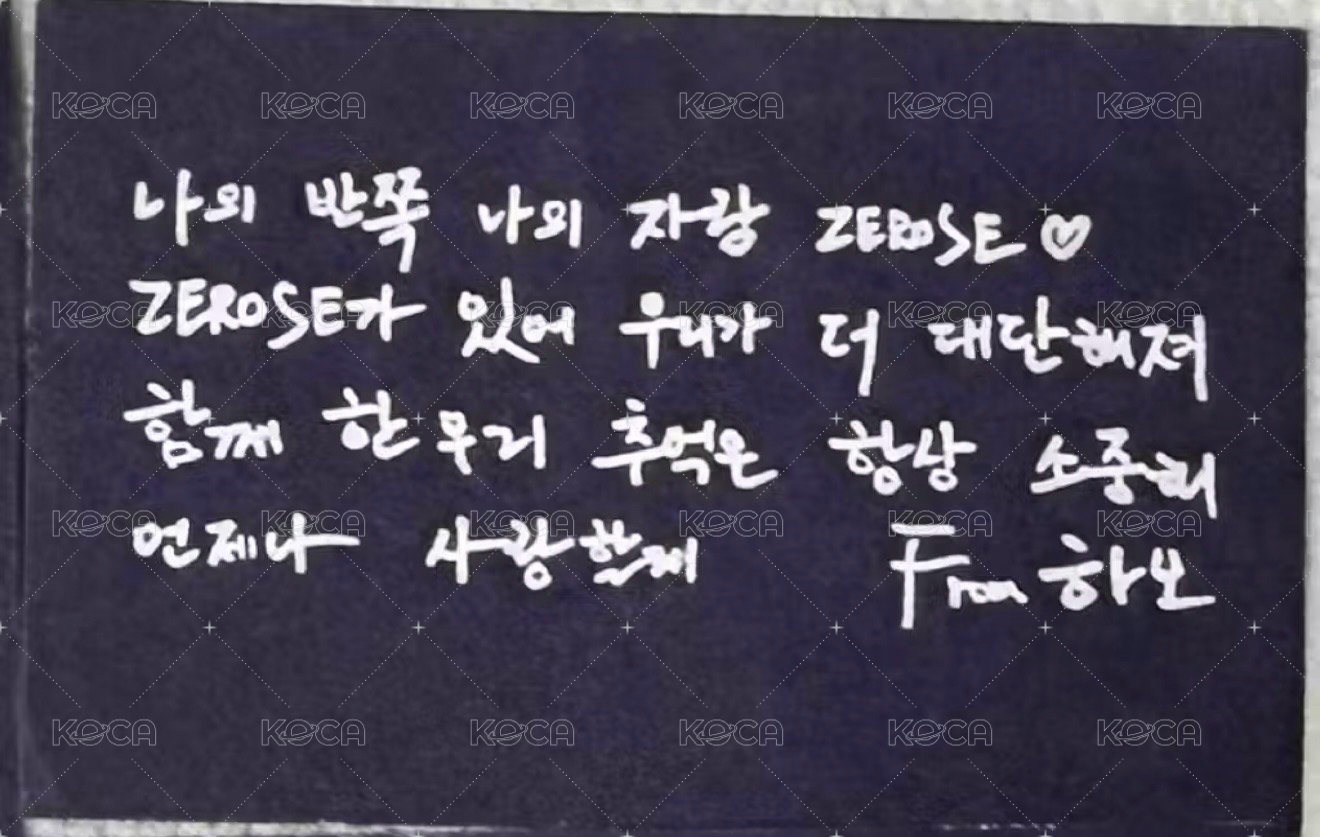 나의 반쪽 나의 자랑 ZEROSE♡
ZEROSE가 있어 우리가 더 대단해져
함께 한 우리 추억은 항상 소중해
언제나 사랑할게 From 하오
KOCA KOCA KOCA KOCA KOCA KOCA
KOCA KOCA KOCA KOCA KOCA KOCA
KOCA KOCA KOCA KOCA KOCA KOCA
KOCA KOCA KOCA KOCA KOCA KOCA